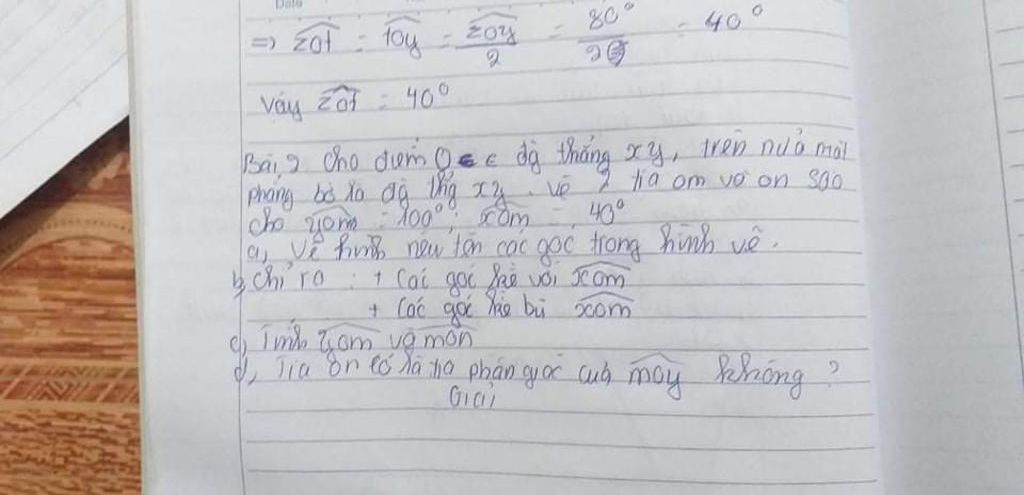 Date
=> zot = toy = zoy/2 = 80°/2 = 40°
Váy zot = 40°
Bài 2 Cho điểm O ∈ đg thẳng xy, trên nửa mặt
phẳng bờ là đg thg xy. vẽ 2 tia om và on sao
cho = 100°; xom = 40°
a, Vẽ hình nêu tên các góc trong hình vẽ.
b, Chỉ ra : + Các góc kề với xom
+ Các góc kề bù xom
c, Tính yom và mon
d, Tia on có là tia phân giác của moy không ?
Giải